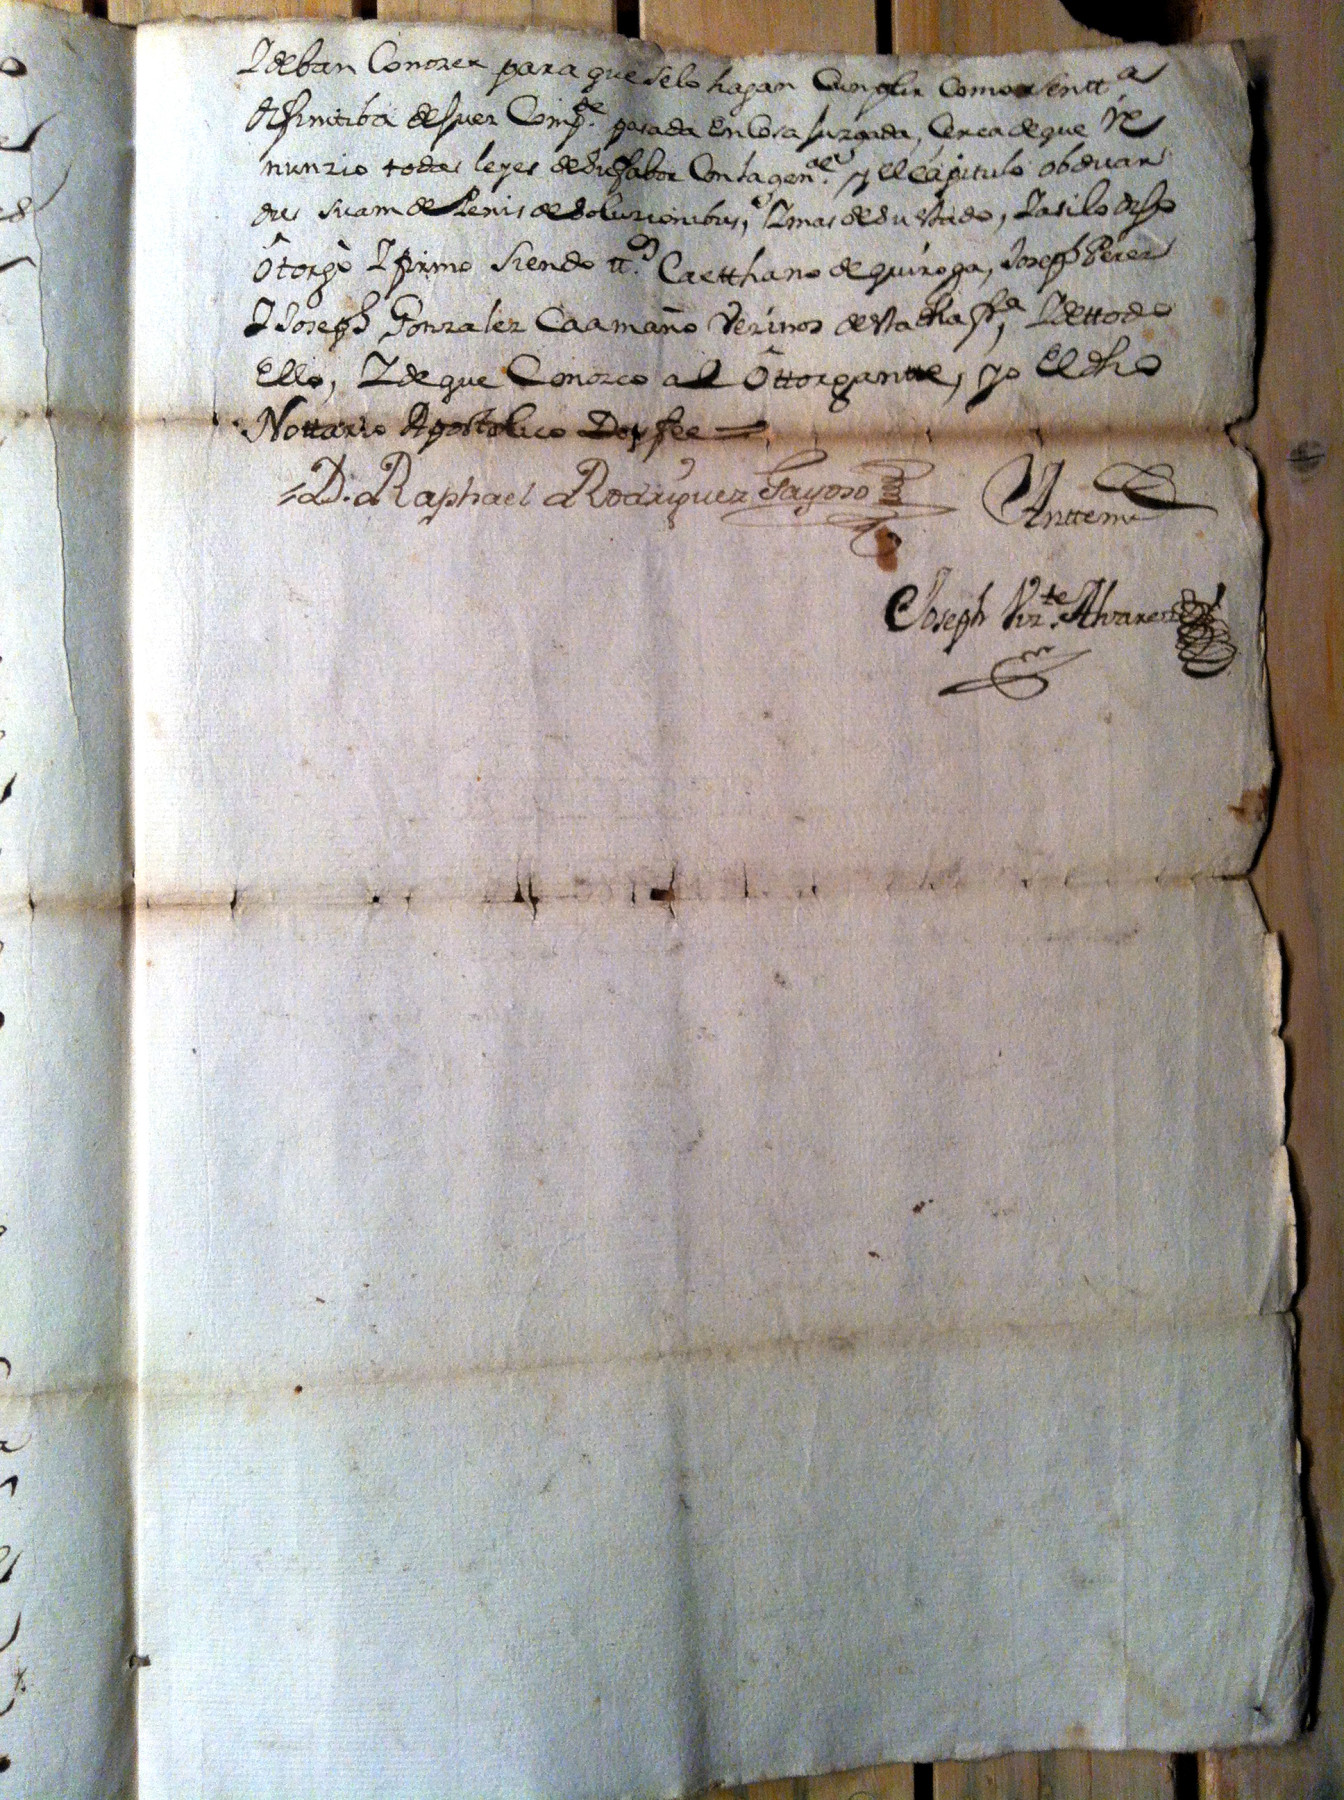 Y deban Conozer para que selo hagan Cunplir Como sentt.ª
difinitiba de Juez Comp.te pasada en Cosa Juzgada, Cerca de que Re
nunzio todas leyes de su fabor Con la gen.al y el Capitulo obduar
dus suam de Penis de Soluzionibus, Y mas de su estado, Y asilo dijo
Otorgò Y firmo siendo tt.os Caetthano de quiroga, Joseph Perez
Y Joseph Gonzalez Caamaño Vezinos de esta dha ff.ª, Y de ttodo
Ello, Y de que Conozco a el Ôttorgantte, yo El dho
Nottario Apostolico Doy fee =
D. Raphael Rodriguez Gayoso Anttemi
Joseph Viz.te Alvarez